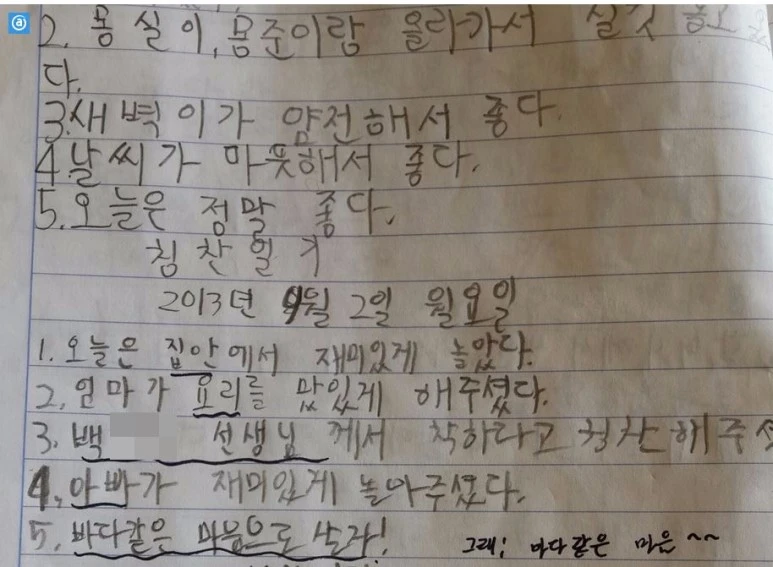 2. 몽실이, 몽준이랑 올라가서 실컷 놀고
다.
3. 새벽이가 얌전해서 좋다.
4. 날씨가 따뜻해서 좋다.
5. 오늘은 정말 좋다.
칭찬일기
2013년 9월 2일 월요일
1. 오늘은 집안에서 재미있게 놀았다.
2. 엄마가 요리를 맛있게 해주셨다.
3. 백 선생님 께서 착하라고 칭찬해주셨
4. 아빠가 재미있게 놀아주셨다.
5. 바다같은 마음으로 살자!
그래! 바다같은 마음~~